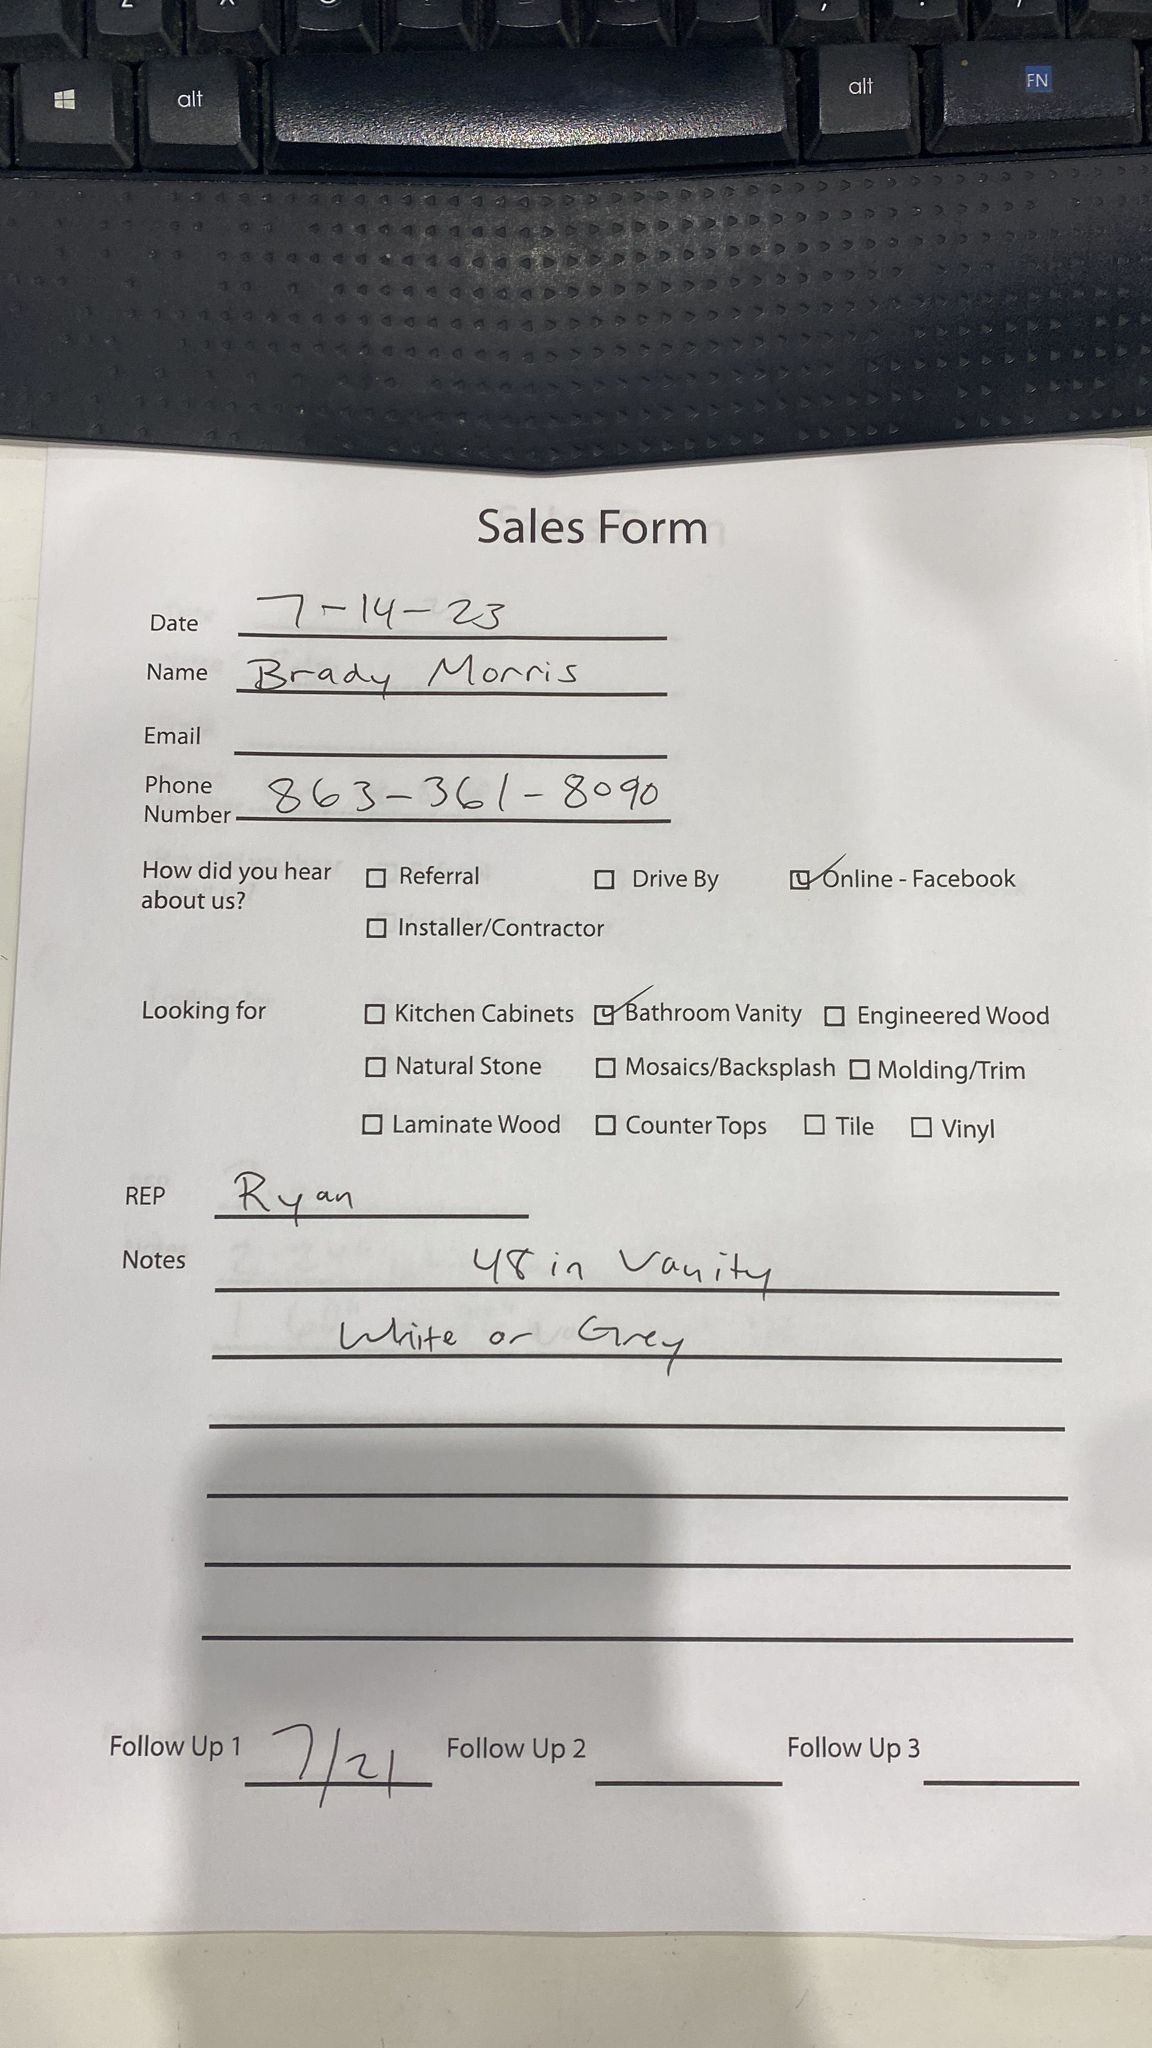 alt alt FN
Sales Form
Date 7-14-23
Name Brady Morris
Email
Phone
Number 863-361-8090
How did you hear ☐ Referral ☐ Drive By ☑ Online - Facebook
about us?
☐ Installer/Contractor
Looking for ☐ Kitchen Cabinets ☑ Bathroom Vanity ☐ Engineered Wood
☐ Natural Stone ☐ Mosaics/Backsplash ☐ Molding/Trim
☐ Laminate Wood ☐ Counter Tops ☐ Tile ☐ Vinyl
REP Ryan
Notes 48 in Vanity
White or Grey
Follow Up 1 7/21 Follow Up 2 Follow Up 3